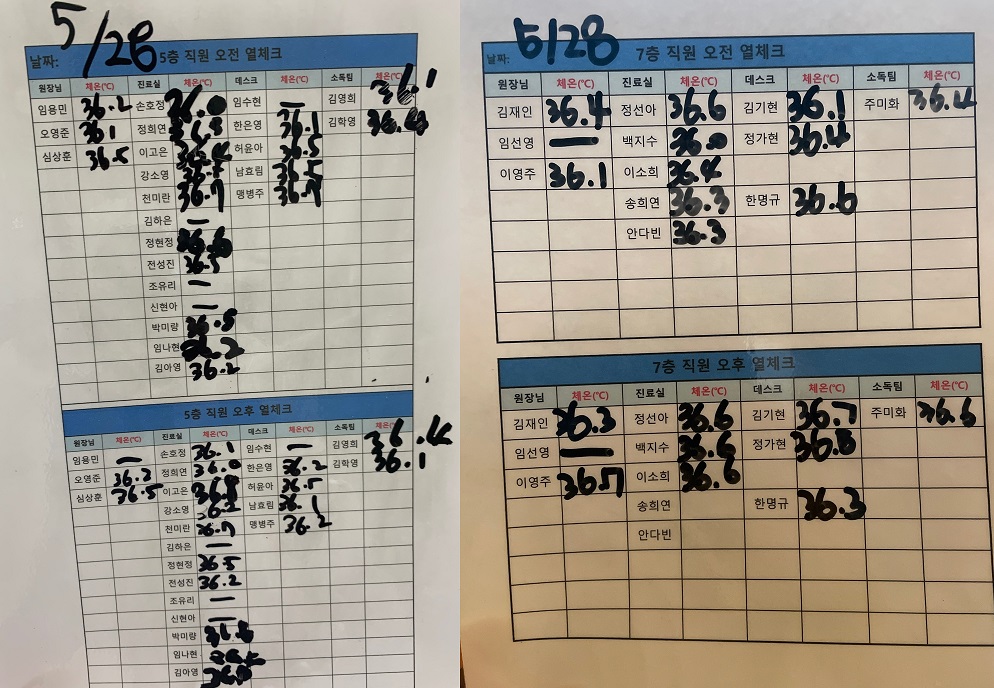 5/28
날짜: 5층 직원 오전 열체크
원장님 체온(℃) 진료실 체온(℃) 데스크 체온(℃) 소독팀 체온(℃)
임용민 36.2 손호정 36.0 임수현 — 김영희 36.1
오영준 36.1 정희연 한은영 36.1 김학영
심상훈 36.5 이고은 허윤아 36.5
강소영 남효림 36.5
천미란 36.7 맹병주 36.7
김하은 —
정현정 36.6
전성진 36.5
조유리 —
신현아 —
박미량 36.5
임나현 36.2
김아영 36.2
5층 직원 오후 열체크
원장님 체온(℃) 진료실 체온(℃) 데스크 체온(℃) 소독팀 체온(℃)
임용민 — 손호정 36.1 임수현 — 김영희 36.4
오영준 36.2 정희연 36.0 한은영 36.2 김학영 36.1
심상훈 36.5 이고은 허윤아 36.5
강소영 36.2 남효림 36.1
천미란 36.7 맹병주 36.2
김하은 —
정현정 36.5
전성진 36.2
조유리 —
신현아 —
박미량
임나현
김아영
5/28
날짜: 7층 직원 오전 열체크
원장님 체온(℃) 진료실 체온(℃) 데스크 체온(℃) 소독팀 체온(℃)
김재인 36.4 정선아 36.6 김기현 36.1 주미화 36.4
임선영 — 백지수 36.0 정가현 36.4
이영주 36.1 이소희 36.4
송희연 36.3 한명규 36.6
안다빈 36.3
7층 직원 오후 열체크
원장님 체온(℃) 진료실 체온(℃) 데스크 체온(℃) 소독팀 체온(℃)
김재인 36.3 정선아 36.6 김기현 36.7 주미화 36.6
임선영 — 백지수 36.6 정가현 36.8
이영주 36.7 이소희 36.6
송희연 한명규 36.3
안다빈